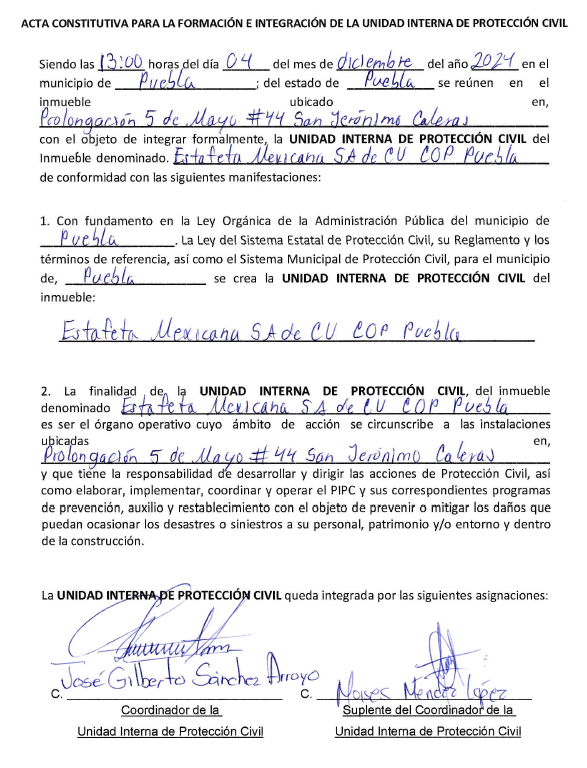 ACTA CONSTITUTIVA PARA LA FORMACIÓN E INTEGRACIÓN DE LA UNIDAD INTERNA DE PROTECCIÓN CIVIL
Siendo las 13:00 horas del día 04 del mes de diciembre del año 2024 en el
municipio de Puebla; del estado de Puebla se reúnen en el
inmueble ubicado en,
Prolongación 5 de Mayo #44 San Jerónimo Caleras
con el objeto de integrar formalmente, la UNIDAD INTERNA DE PROTECCIÓN CIVIL del
Inmueble denominado. Estafeta Mexicana SA de CV COP Puebla
de conformidad con las siguientes manifestaciones:
1. Con fundamento en la Ley Orgánica de la Administración Pública del municipio de
Puebla. La Ley del Sistema Estatal de Protección Civil, su Reglamento y los
términos de referencia, así como el Sistema Municipal de Protección Civil, para el municipio
de, Puebla se crea la UNIDAD INTERNA DE PROTECCIÓN CIVIL del
inmueble:
Estafeta Mexicana SA de CV COP Puebla
2. La finalidad de la UNIDAD INTERNA DE PROTECCIÓN CIVIL, del inmueble
denominado Estafeta Mexicana SA de CV COP Puebla
es ser el órgano operativo cuyo ámbito de acción se circunscribe a las instalaciones
ubicadas en,
Prolongación 5 de Mayo #44 San Jerónimo Caleras
y que tiene la responsabilidad de desarrollar y dirigir las acciones de Protección Civil, así
como elaborar, implementar, coordinar y operar el PIPC y sus correspondientes programas
de prevención, auxilio y restablecimiento con el objeto de prevenir o mitigar los daños que
puedan ocasionar los desastres o siniestros a su personal, patrimonio y/o entorno y dentro
de la construcción.
La UNIDAD INTERNA DE PROTECCIÓN CIVIL queda integrada por las siguientes asignaciones:
C. José Gilberto Sánchez Arroyo C. Moises Mendez López
Coordinador de la Suplente del Coordinador de la
Unidad Interna de Protección Civil Unidad Interna de Protección Civil